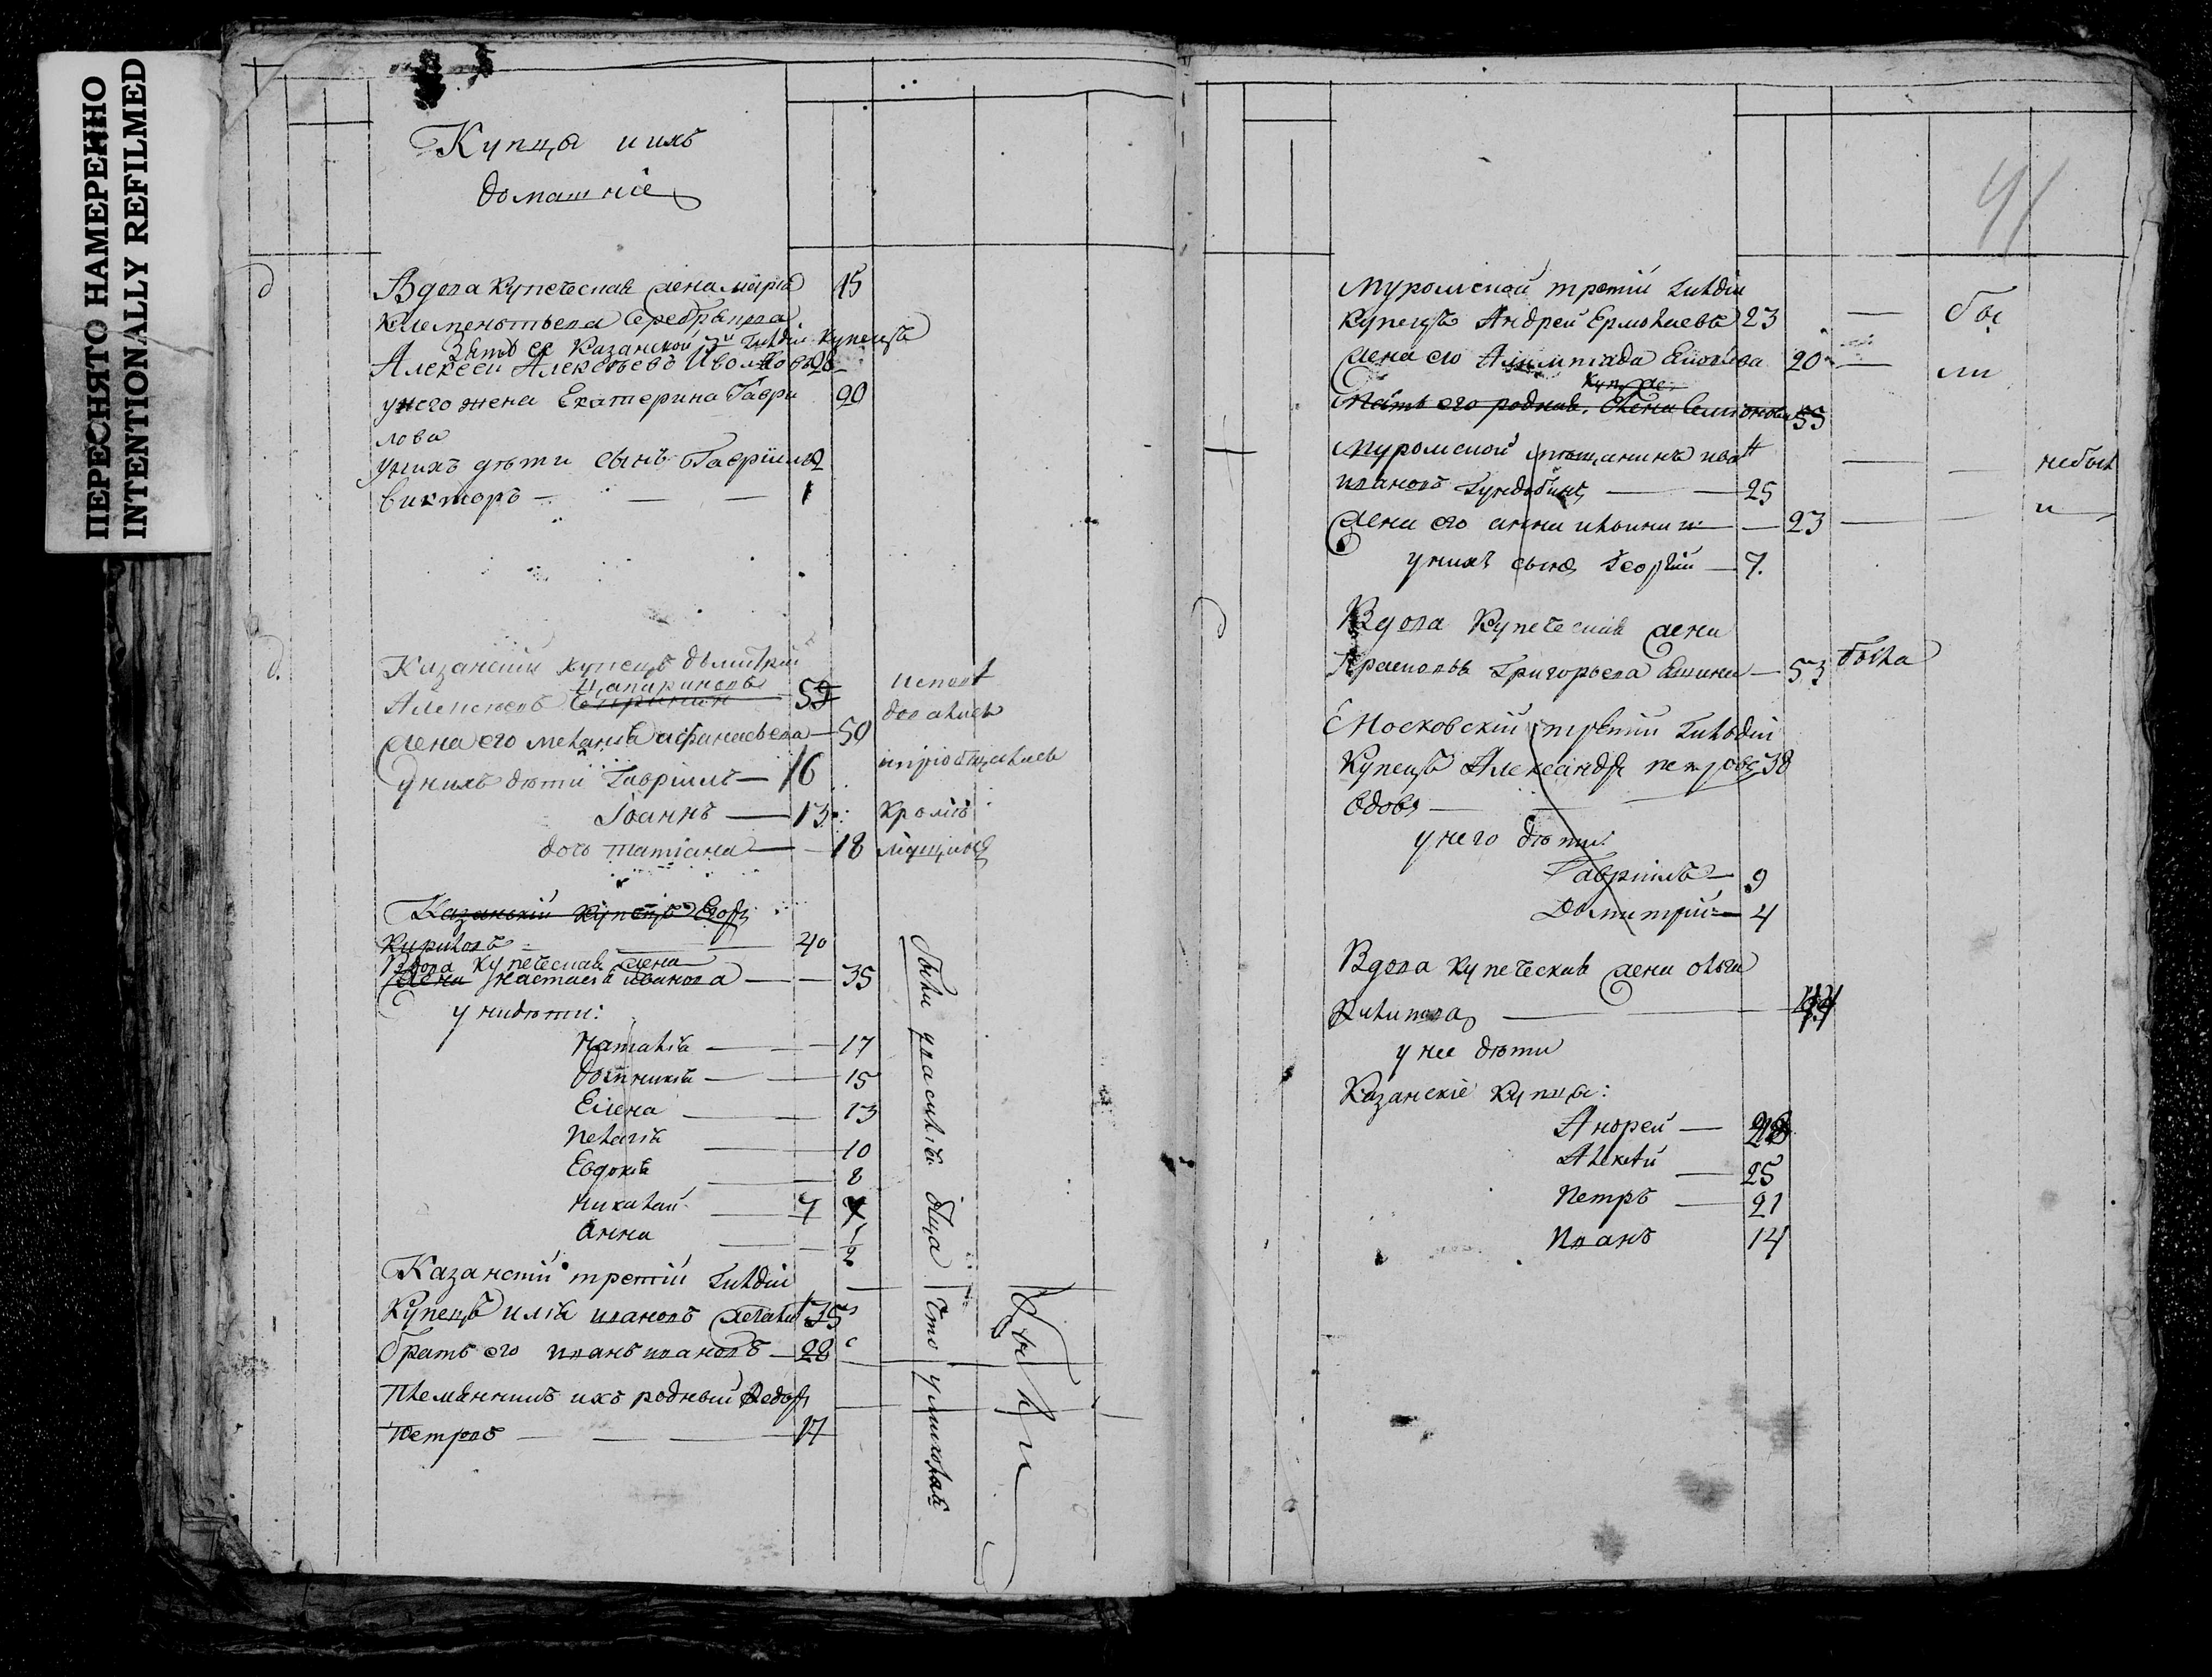 ПЕРЕСНЯТО НАМЕРЕННО
INTENTIONALLY REFILMED
Купцы и ихъ
домашніе
Вдова купеческая жена Марья 45
Клементьева Серебрякова
Зять ея Казанской 3й гильдіи купецъ
Алексеи Алексѣевъ 28
у него жена Екатерина Гаври 20
лова
у нихъ дѣти сынъ Гавріилъ 2
Викторъ — — — 1
Казанскій купецъ Дьмитрій
Алексѣевъ 59
жена его Меланія Афанасьева — 50
у нихъ дѣти Гавріилъ — 16
Іоаннъ — 13
дочь Татіана — 18
испов
довались
и пріобщались
кромѣ
Казанскій купецъ Егоръ
Кириловъ — 40
Вдова купеческая жена
жена Настасья Иванова — 35
у ни дѣти:
Наталія — 17
15
Елена — 13
Пелагія — 10
Евдокія — 8
Николай — 4
Анна — 1/2
Казанскій третій гильдіи
Купецъ Илія Ивановъ 35
братъ его Иванъ Ивановъ — 28
Племянникъ ихъ родный Федоръ
Петровъ — 17
были у
были
41
Муромской третій гильдіи
купецъ Андрей Ермолаевъ 23 — бы
жена его Алимпіада 20 — ли
Мать его родная, Елена Семіонова 55
Муромской мѣщанинъ Иван
Ивановъ — 25 — небыл
жена его Анна — 23 — и
у нихъ сынъ Георгій — 7.
Вдова Купеческая жена
Григорьева — 53 была
Московскій третій гильдіи
Купецъ Александръ Петровъ 38
вдовъ —
у него дѣти:
Гавріилъ — 9
Дьмитрій — 4
Вдова купеческая жена Ольга
Филипова —
у нее дѣти
Казанскіе купцы:
Андрей —
Алексѣй — 25
Петръ — 21
Иванъ 14